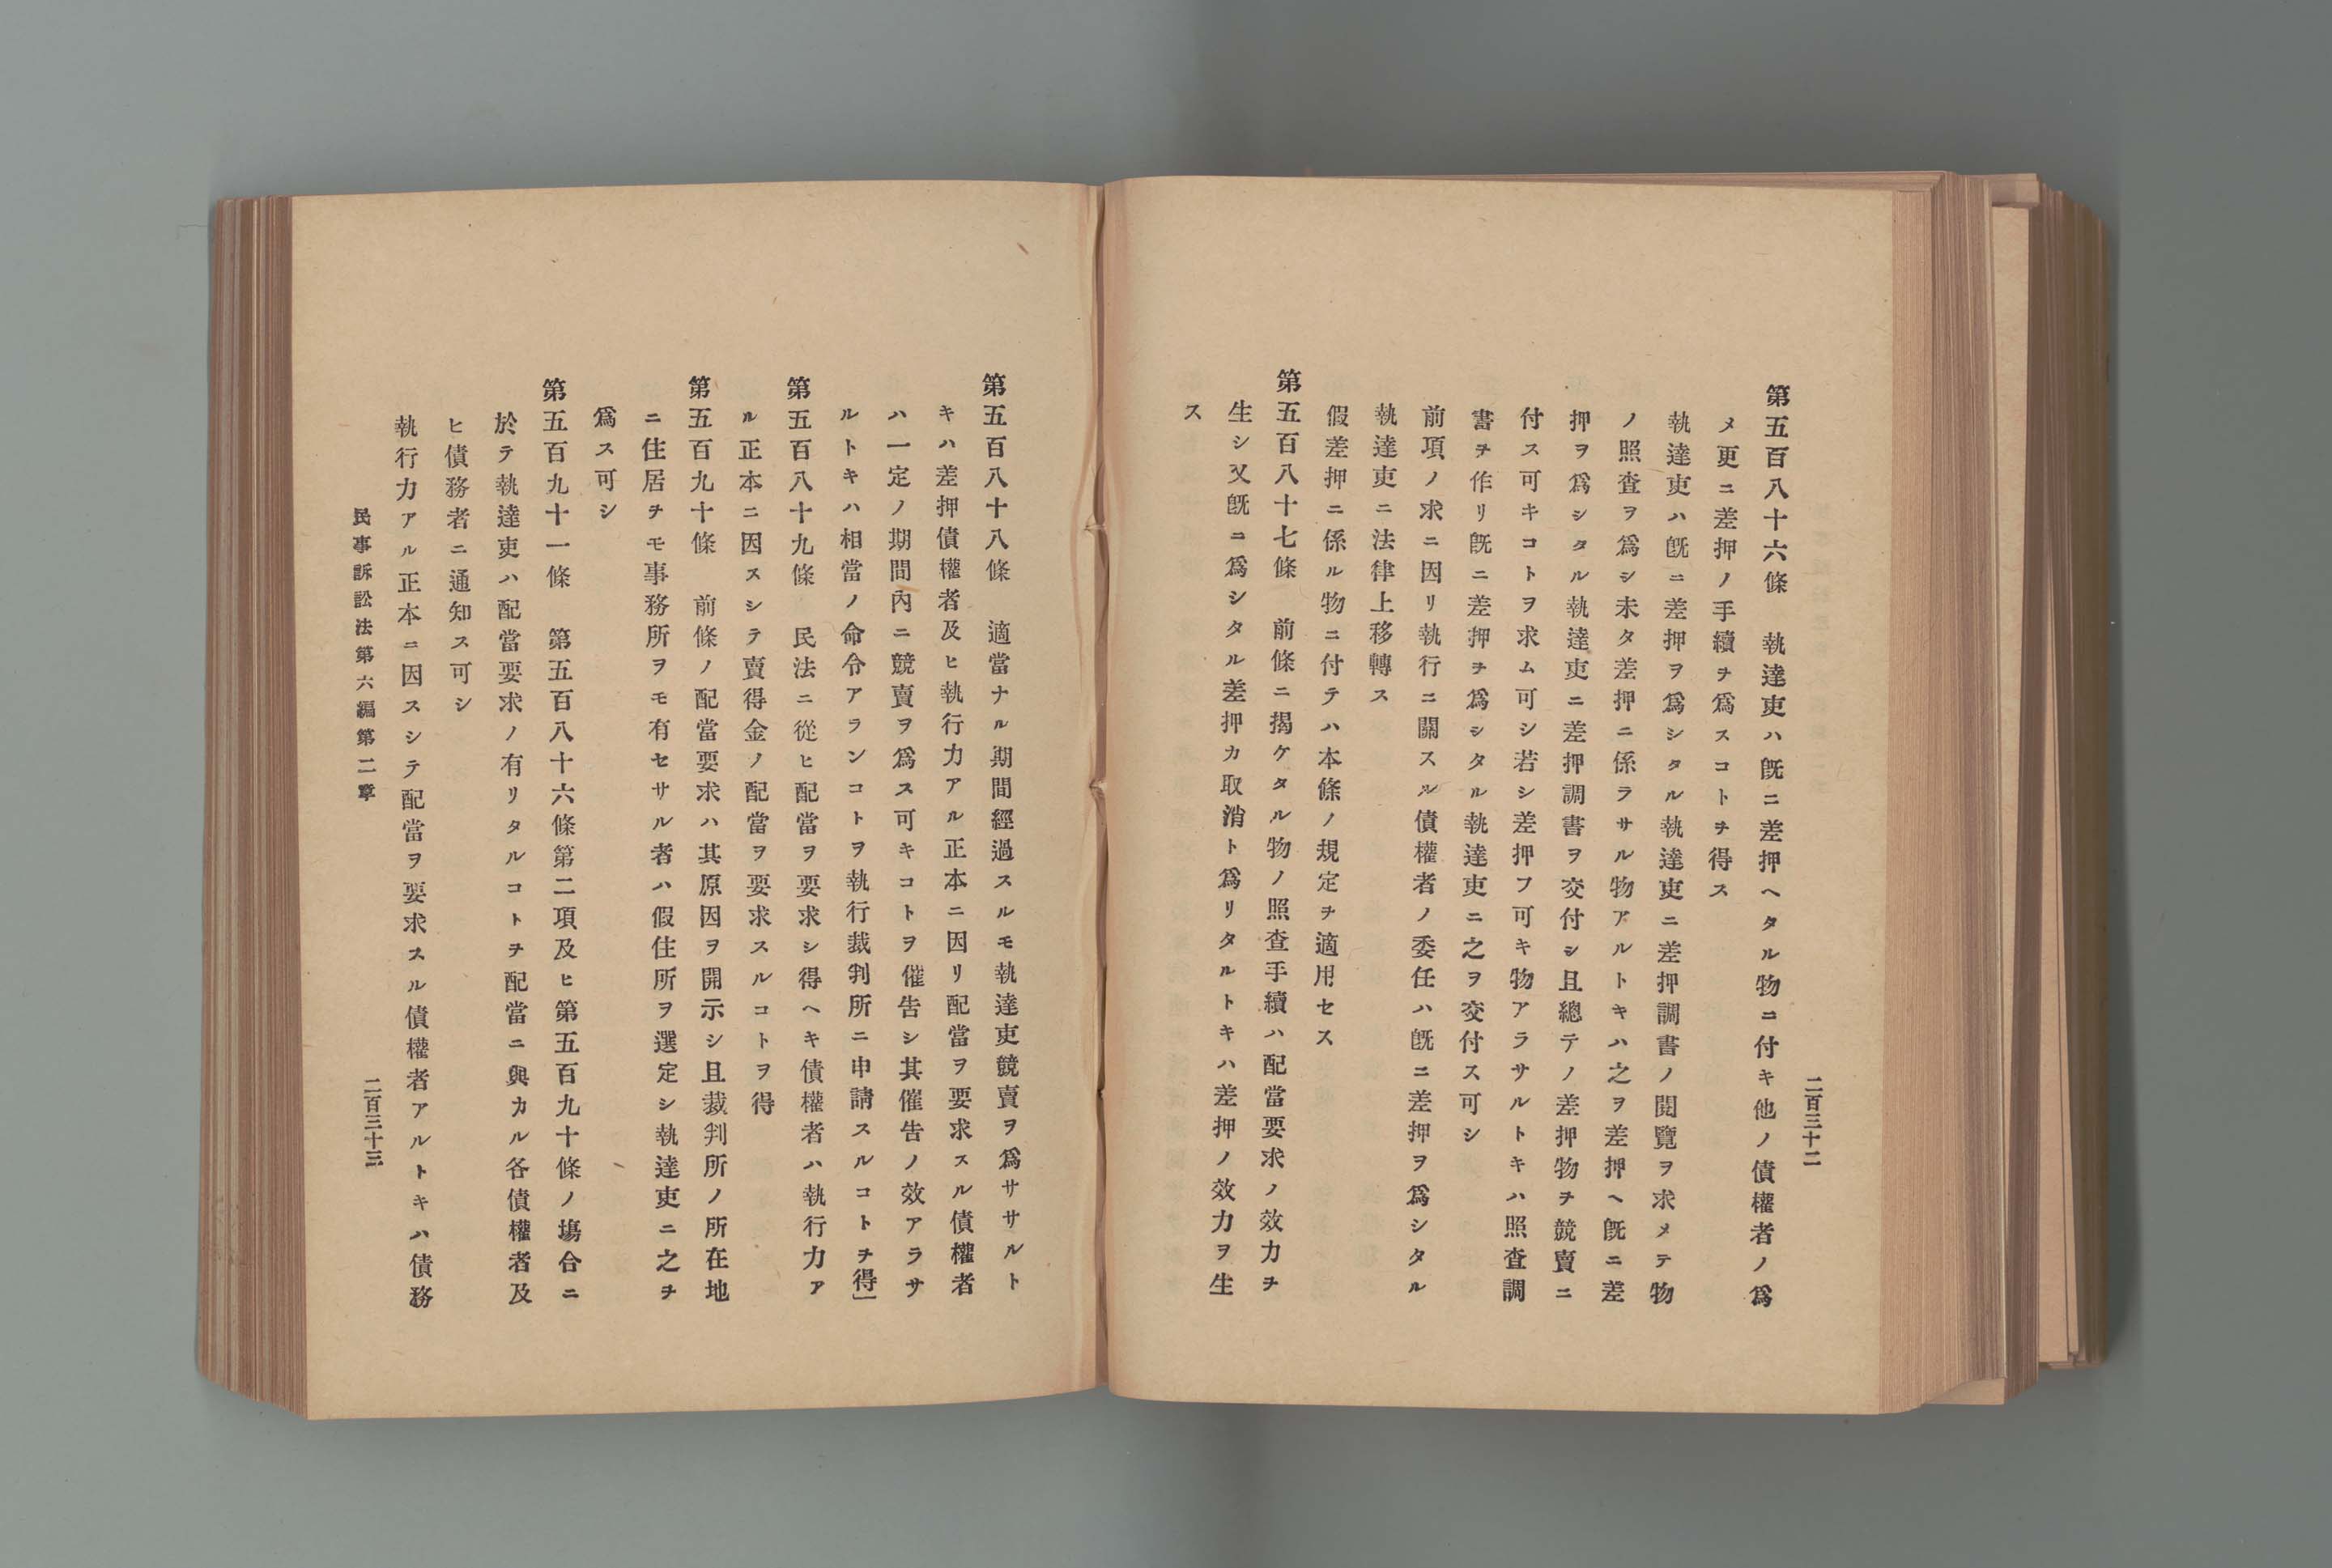 二百三十二
第五百八十六條　執達吏ハ旣ニ差押ヘタル物ニ付キ他ノ債權者ノ爲
メ更ニ差押ノ手續ヲ爲スコトヲ得ス
執達吏ハ旣ニ差押ヲ爲シタル執達吏ニ差押調書ノ閱覽ヲ求メテ物
ノ照査ヲ爲シ未タ差押ニ係ラサル物アルトキハ之ヲ差押ヘ旣ニ差
押ヲ爲シタル執達吏ニ差押調書ヲ交付シ且總テノ差押物ヲ競賣ニ
付ス可キコトヲ求ム可シ若シ差押フ可キ物アラサルトキハ照査調
書ヲ作リ旣ニ差押ヲ爲シタル執達吏ニ之ヲ交付ス可シ
前項ノ求ニ因リ執行ニ關スル債權者ノ委任ハ旣ニ差押ヲ爲シタル
執達吏ニ法律上移轉ス
假差押ニ係ル物ニ付テハ本條ノ規定ヲ適用セス
第五百八十七條　前條ニ揭ケタル物ノ照査手續ハ配當要求ノ效力ヲ
生シ又旣ニ爲シタル差押カ取消ト爲リタルトキハ差押ノ效力ヲ生
ス
第五百八十八條　適當ナル期間經過スルモ執達吏競賣ヲ爲サヽルト
キハ差押債權者及ヒ執行力アル正本ニ因リ配當ヲ要求スル債權者
ハ一定ノ期間內ニ競賣ヲ爲ス可キコトヲ催告シ其催告ノ效アラサ
ルトキハ相當ノ命令アランコトヲ執行裁判所ニ申請スルコトヲ得」
第五百八十九條　民法ニ從ヒ配當ヲ要求シ得ヘキ債權者ハ執行力ア
ル正本ニ因スシテ賣得金ノ配當ヲ要求スルコトヲ得
第五百九十條　前條ノ配當要求ハ其原因ヲ開示シ且裁判所ノ所在地
ニ住居ヲモ事務所ヲモ有セサル者ハ假住所ヲ選定シ執達吏ニ之ヲ
爲ス可シ
第五百九十一條　第五百八十六條第二項及ヒ第五百九十條ノ塲合ニ
於テ執達吏ハ配當要求ノ有リタルコトヲ配當ニ與カル各債權者及
ヒ債務者ニ通知ス可シ
執行力アル正本ニ因スシテ配當ヲ要求スル債權者アルトキハ債務
民事訴訟法第六編第二章
二百三十三